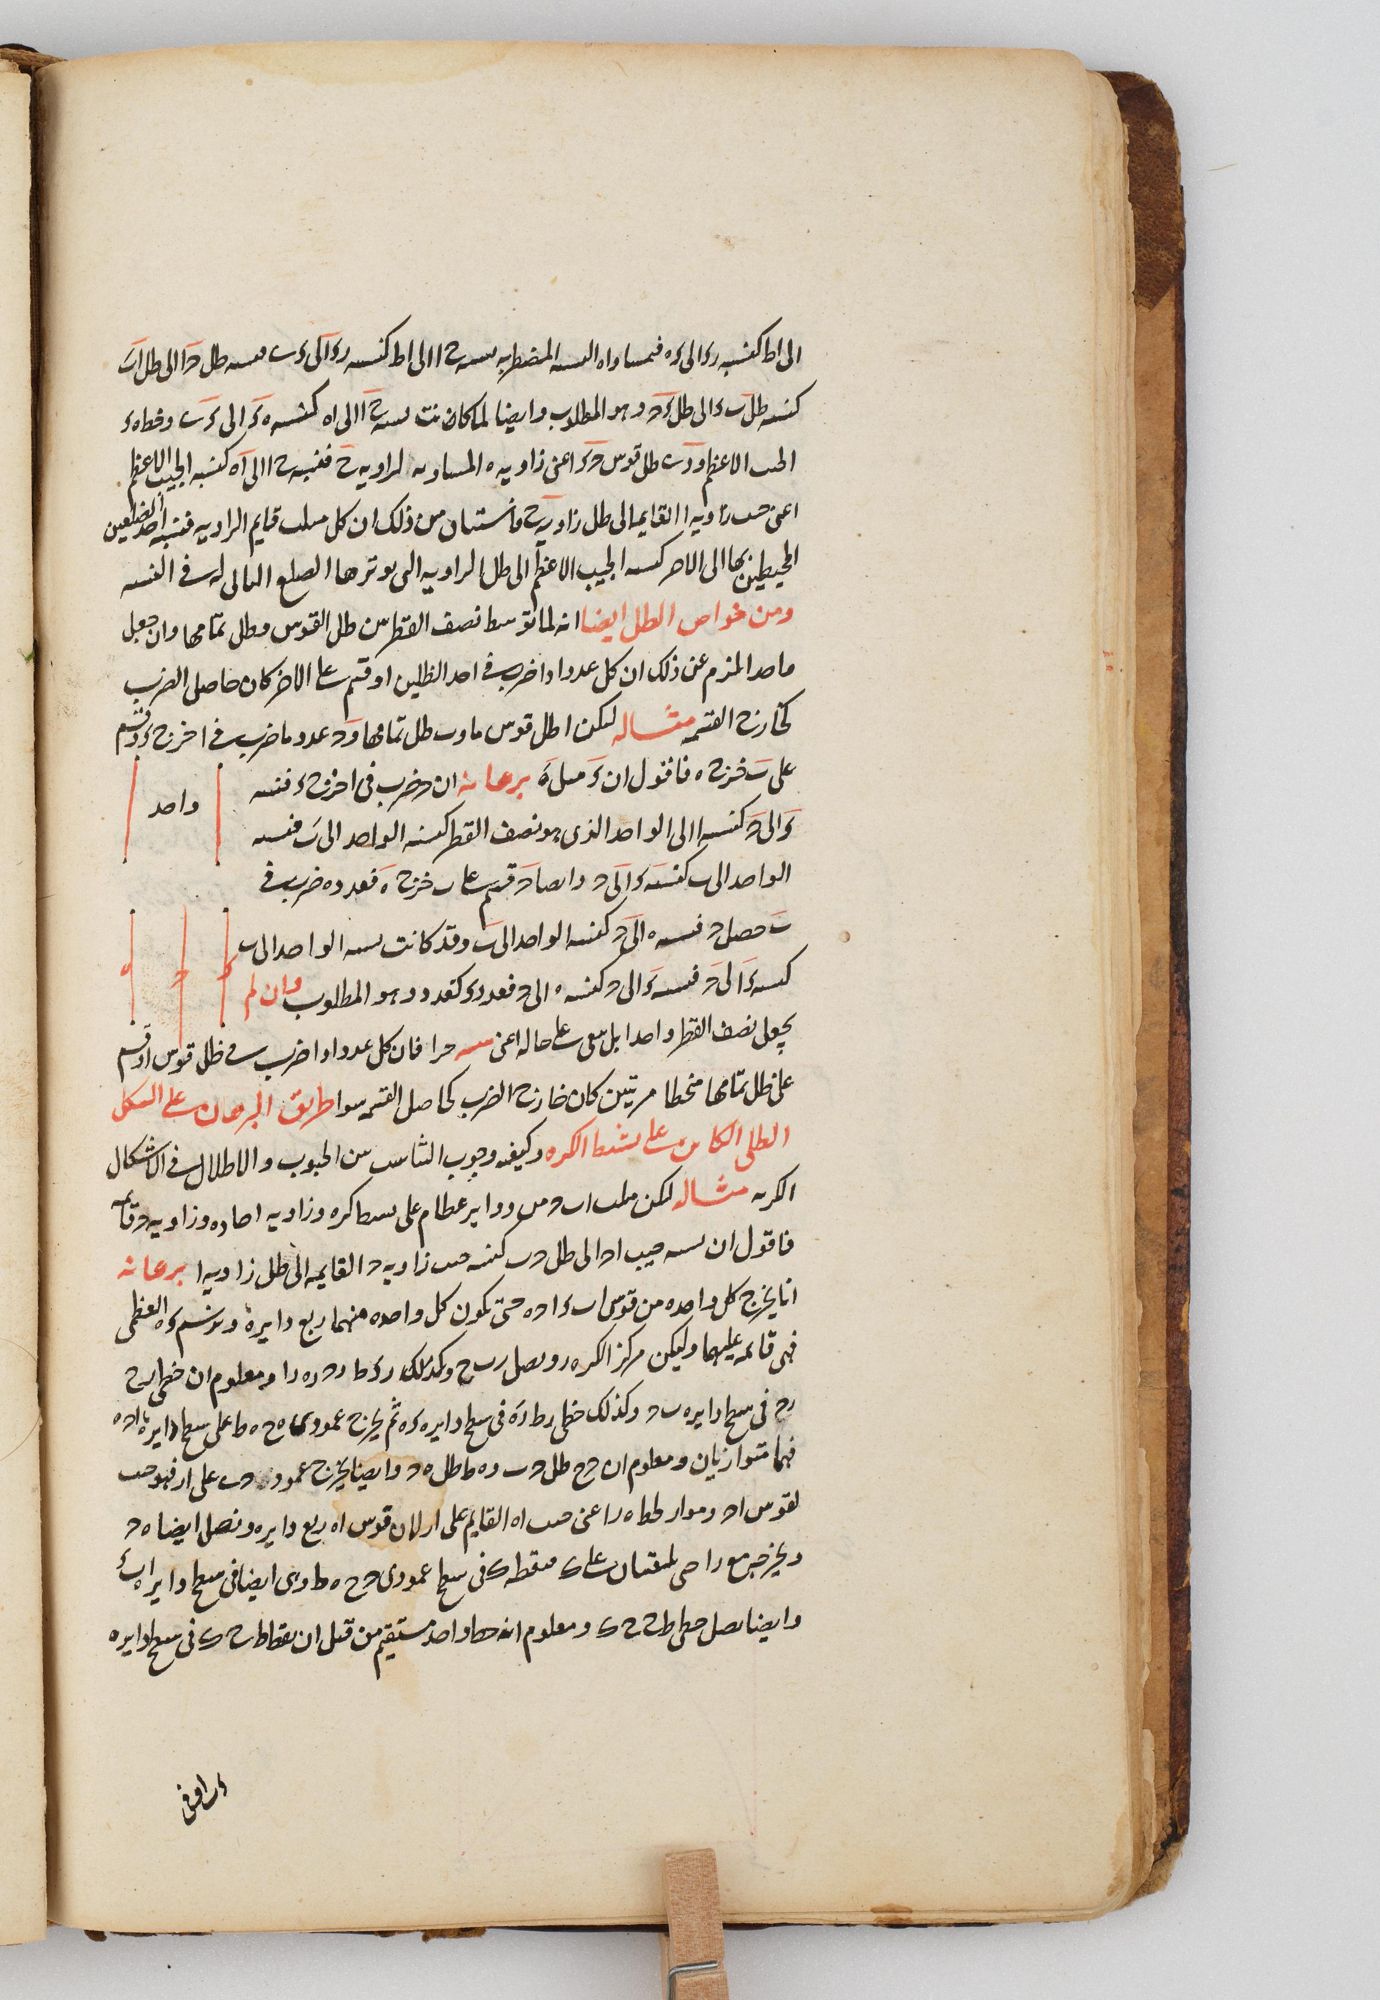 الى اط كنسبه رء الى ءه فبمساواه النسبه المضطربه نسبه ح ا الى اط كنسبه رء الى ءب فنسبه ظل حا الى ظل اب
كنسبه ظل ب ء الى ظل ءح وهو المطلوب وايضا لما كانت نسبه ح ا الى اه كنسبه ه ء الى ء ب وخط ه ء
الجيب الاعظم و ء ب ظل قوس ح ء اعنى زاويه ه المساويه لزاويه ح فنسبه ح ا الى اه كنسبه الجيب الاعظم
اعنى جيب زاويه ا القايمه الى ظل زاويه ح فاستبان من ذلك ان كل مثلث قايم الزاويه فنسبه احد الضلعين
المحيطين بها الى الاخر كنسبه الجيب الاعظم الى ظل الزاويه التى يوترها الضلع التالى له فى النسبه
ومن خواص الظل ايضا انه لما توسط نصف القطر بين ظل القوس وظل تمامها وان جعل
واحدا لزم عن ذلك ان كل عدد اذا ضرب فى احد الظلين او قسم على الاخر كان حاصل الضرب
كخارج القسمه مثاله ليكن ا ظل قوس ما و ب ظل تمامها و ح عدد ما ضرب فى ا خرج ء وقسم
على ب خرج ه فاقول ان ء مثل ه برهانه ان ح ضرب فى ا خرج ء فنسبه
واحد
ء الى ح كنسبه ا الى الواحد الذى هو نصف القطر كنسبه الواحد الى ب فنسبه
الواحد الى ب كنسبه ء الى ح وايضا ح قسم على ب خرج ه فعدد ه ضرب فى
ب حصل ح فنسبه ه الى ح كنسبه الواحد الى ب وقد كانت نسبه الواحد الى ب
ء ح ه
كنسبه ء الى ح فنسبه ء الى ح كنسبه ه الى ح فعدد ء كعدد ه وهو المطلوب وان لم
يجعل نصف القطر واحدا بل بقى على حاله اعنى ستين جزا فان كل عدد اذا ضرب فى ظل قوس او قسم
على ظل تمامها منحطا مرتين كان خارج الضرب كحاصل القسمه سوا طريق البرهان على الشكل
الظلى الكاين على بسيط الكره وكيفيه وجوب التناسب بين الجيوب والاظلال فى الاشكال
الكريه مثاله ليكن مثلث اب ح من دواير عظام على بسيط كره وزاويه ا حاده وزاويه ح قايمه
فاقول ان نسبه جيب اح الى ظل ح ب كنسبه جيب زاويه ح القايمه الى ظل زاويه ا برهانه
انا نخرج كل واحده من قوس اب ء اح ه حتى تكون كل واحده منهما ربع دايره ونرسم ء ه العظمى
فهى قايمه عليهما وليكن مركز الكره ر ونصل ر ب ح وكذلك ر ء ط ر ح ر ه ر ا ومعلوم ان خطى ر ح
ر ح فى سطح دايره ب ح وكذلك خطى ر ط ر ه فى سطح دايره ء ه ثم نخرج عمودى ح ح ه ط على سطح دايره اح ه
فهما متوازيان ومعلوم ان ح ح ظل ح ب و ه ط ظل ه ء وايضا نخرج عمود ح ى على ا ر فهو جيب
لقوس اح ومواز لخط ه ر اعنى جيب اه القايم على ا ر لان قوس اه ربع دايره ونصل ايضا ه ح
ونخرجه مع ر ا حتى يلتقيان على ك فنقطه ك فى سطح عمودى ح ح ه ط وهى ايضا فى سطح دايره اب ء
وايضا نصل خطى ط ح ح ك ومعلوم انه خط واحد مستقيم من قبل ان نقط ط ح ك فى سطح دايره
ا ب ء وفى